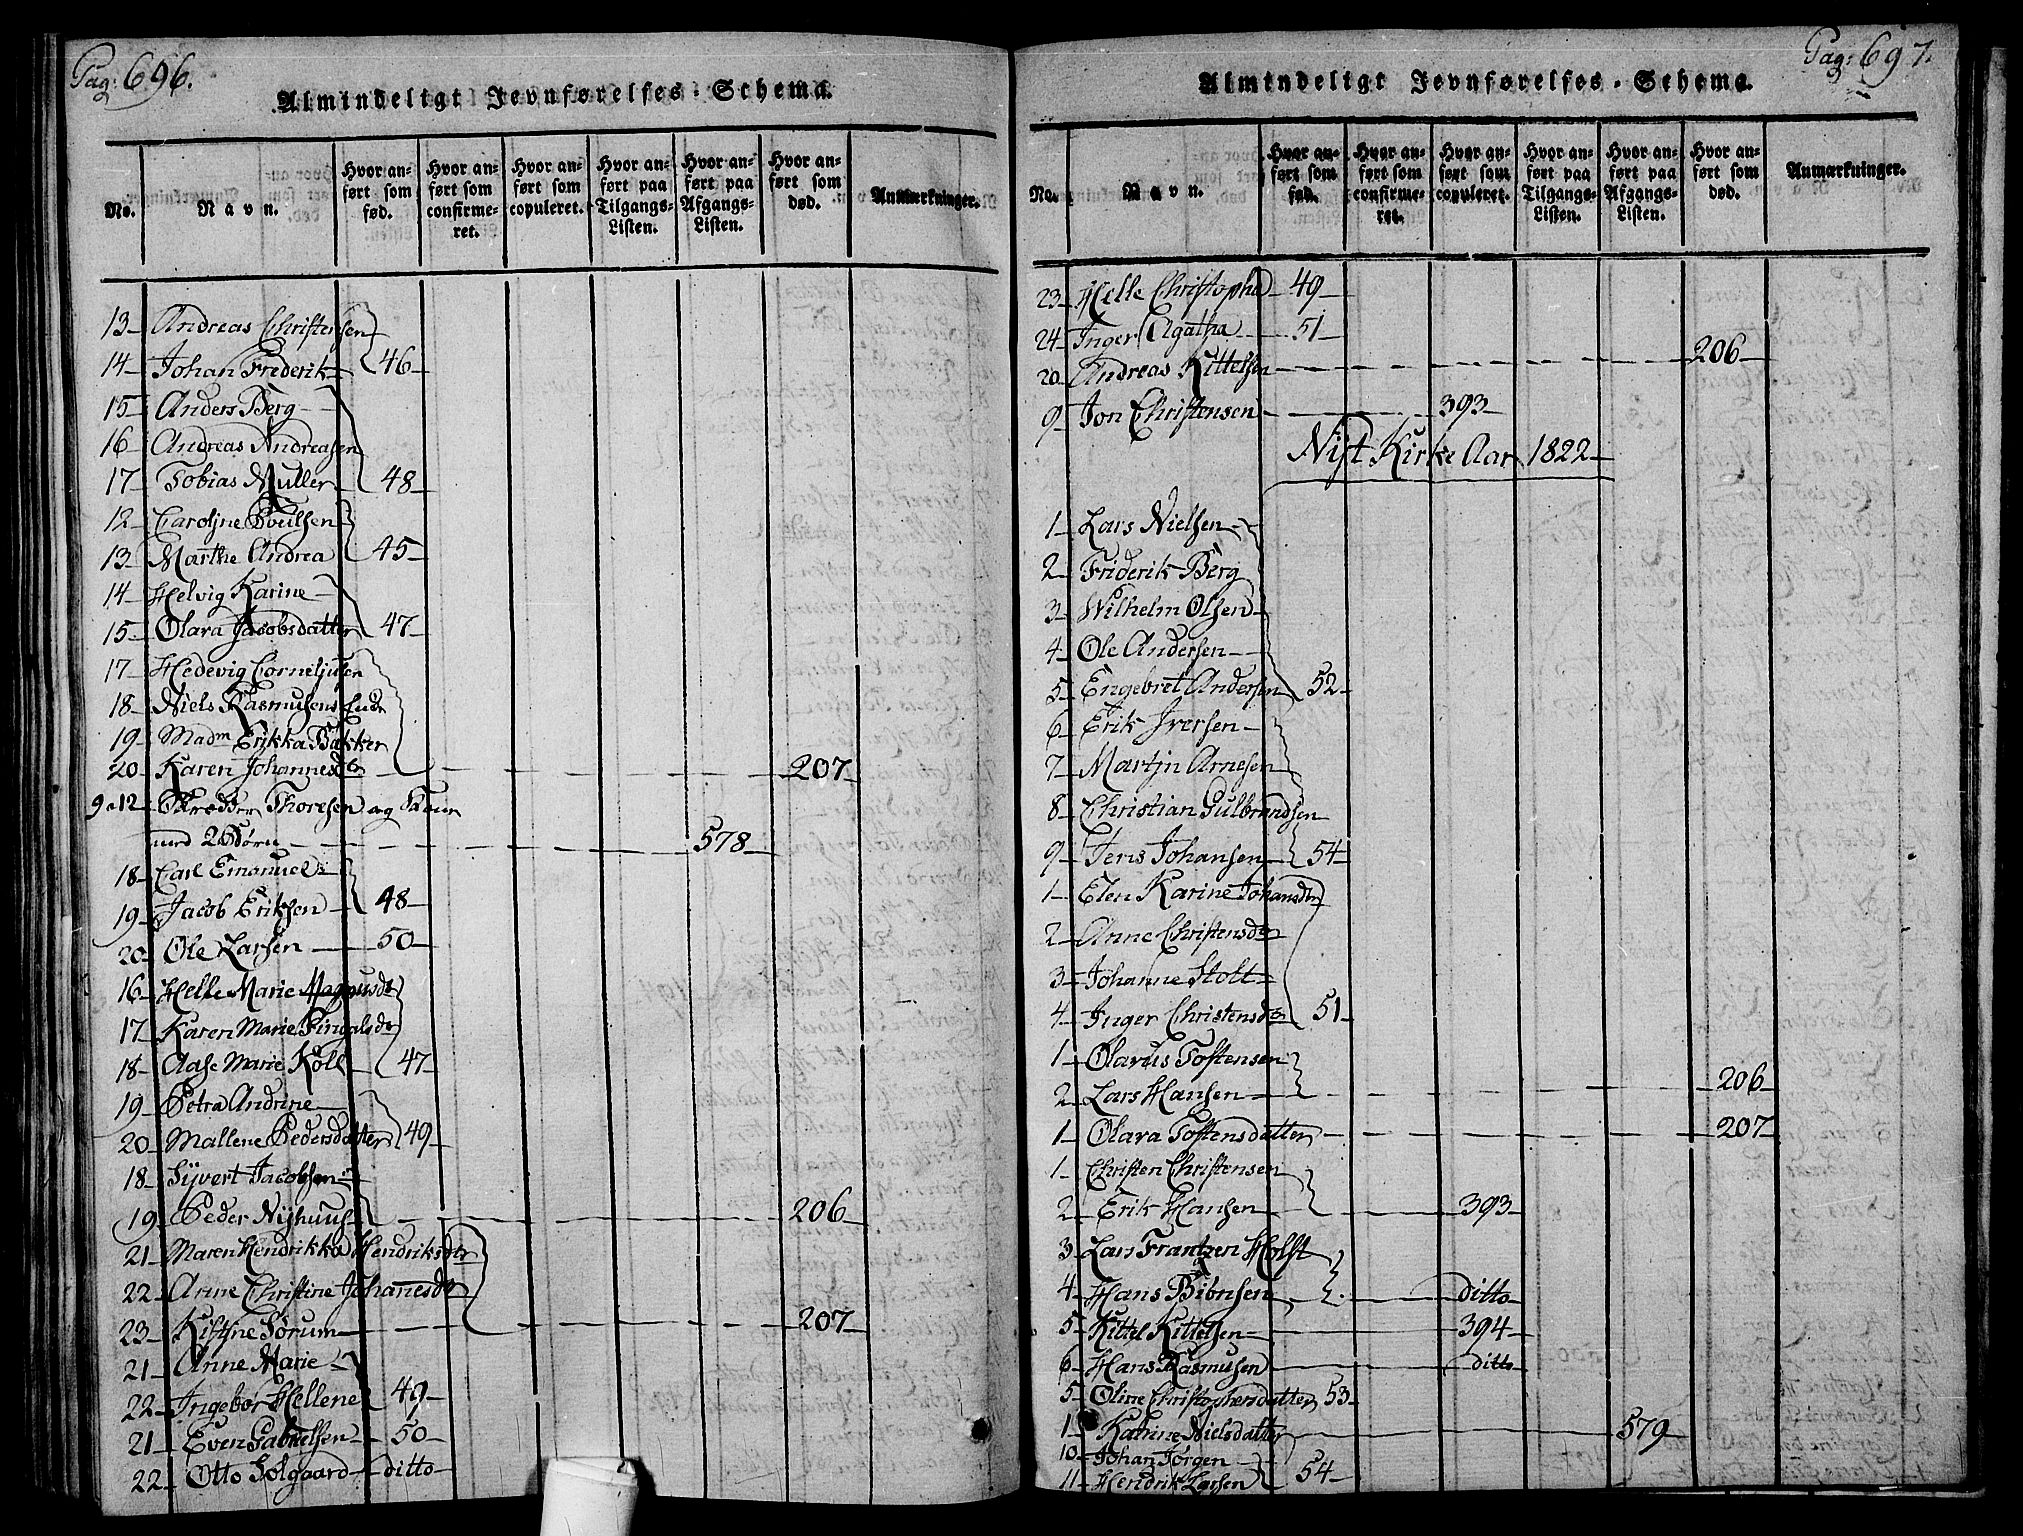 Pag: 696.
Almindeligt Jevnførelses-Schema.
No. Navn. Hvor anført som fød. Hvor anført som confirmeret. Hvor anført som copuleret. Hvor anført paa Tilgangs-Listen. Hvor anført paa Afgangs-Listen. Hvor anført som død. Anmærkninger.
13 Andreas Christensen
14 Johan Frederik 46
15 Anders Berg
16 Andreas Andreasen
17 Tobias Muller 48
12 Caroljne Poulsen
13 Marthe Andrea 45
14 Helvig Karine
15 Olara Jacobsdatter 47
17 Hedevig Corneljusen
18 Niels Rasmusens
19 Madm Erikka Bakker
20 Karen Johannesdr 207
9-12 Skredder Thoresen og Kone
med 2 Børn 578
18 Carl Emanuel
19 Jacob Eriksen 48
20 Ole Larsen 50
16 Helle Marie Magnusdr
17 Karen Marie Fingalsdr
18 Aase Marie Koll 47
19 Petra Andrine
20 Mallene Pedersdatter 49
18 Sÿvert Jacobsen
19 Peder Nÿhuus 206
21 Maren Hendrikka Hendriksdr
22 Anne Christine Johanesdr
23 Kistine Sørum 207
21 Anne Marie
22 Ingebor Hellene 49
21 Even Gabrielsen 50
22 Otto Solgaard ditto
Pag: 697.
Almindeligt Jevnførelses-Schema.
No. Navn. Hvor anført som fød. Hvor anført som confirmeret. Hvor anført som copuleret. Hvor anført paa Tilgangs-Listen. Hvor anført paa Afgangs-Listen. Hvor anført som død. Anmærkninger.
23 Helle Christopha 49
24 Inger Agatha 51
20 Andreas Kittelsen 206
9 Jon Christensen 393
Nyt Kirke Aar 1822
1 Lars Nielsen
2 Friderik Berg
3 Wilhelm Olsen
4 Ole Andersen
5 Engebret Andersen 52
6 Erik Iversen
7 Martjn Arnesen
8 Christian Gulbrandsen
9 Jens Johansen 54
1 Elen Karine Johansdr
2 Anne Christensdr
3 Johanne Stolt
4 Inger Christensdr 51
1 Olavus Toftensen
2 Lars Hansen 206
1 Olara Toftensdatter 207
1 Christen Christensen
2 Erik Hansen 393
3 Lars Frantzen Holst
4 Hans Biønsen ditto
5 Kittel Kittelsen 394
6 Hans Rasmusen ditto
5 Oline Christophersdatter 53
1 Katrine Nielsdatter 579
10 Johan Jørgen
11 Hendrik Larsen 54